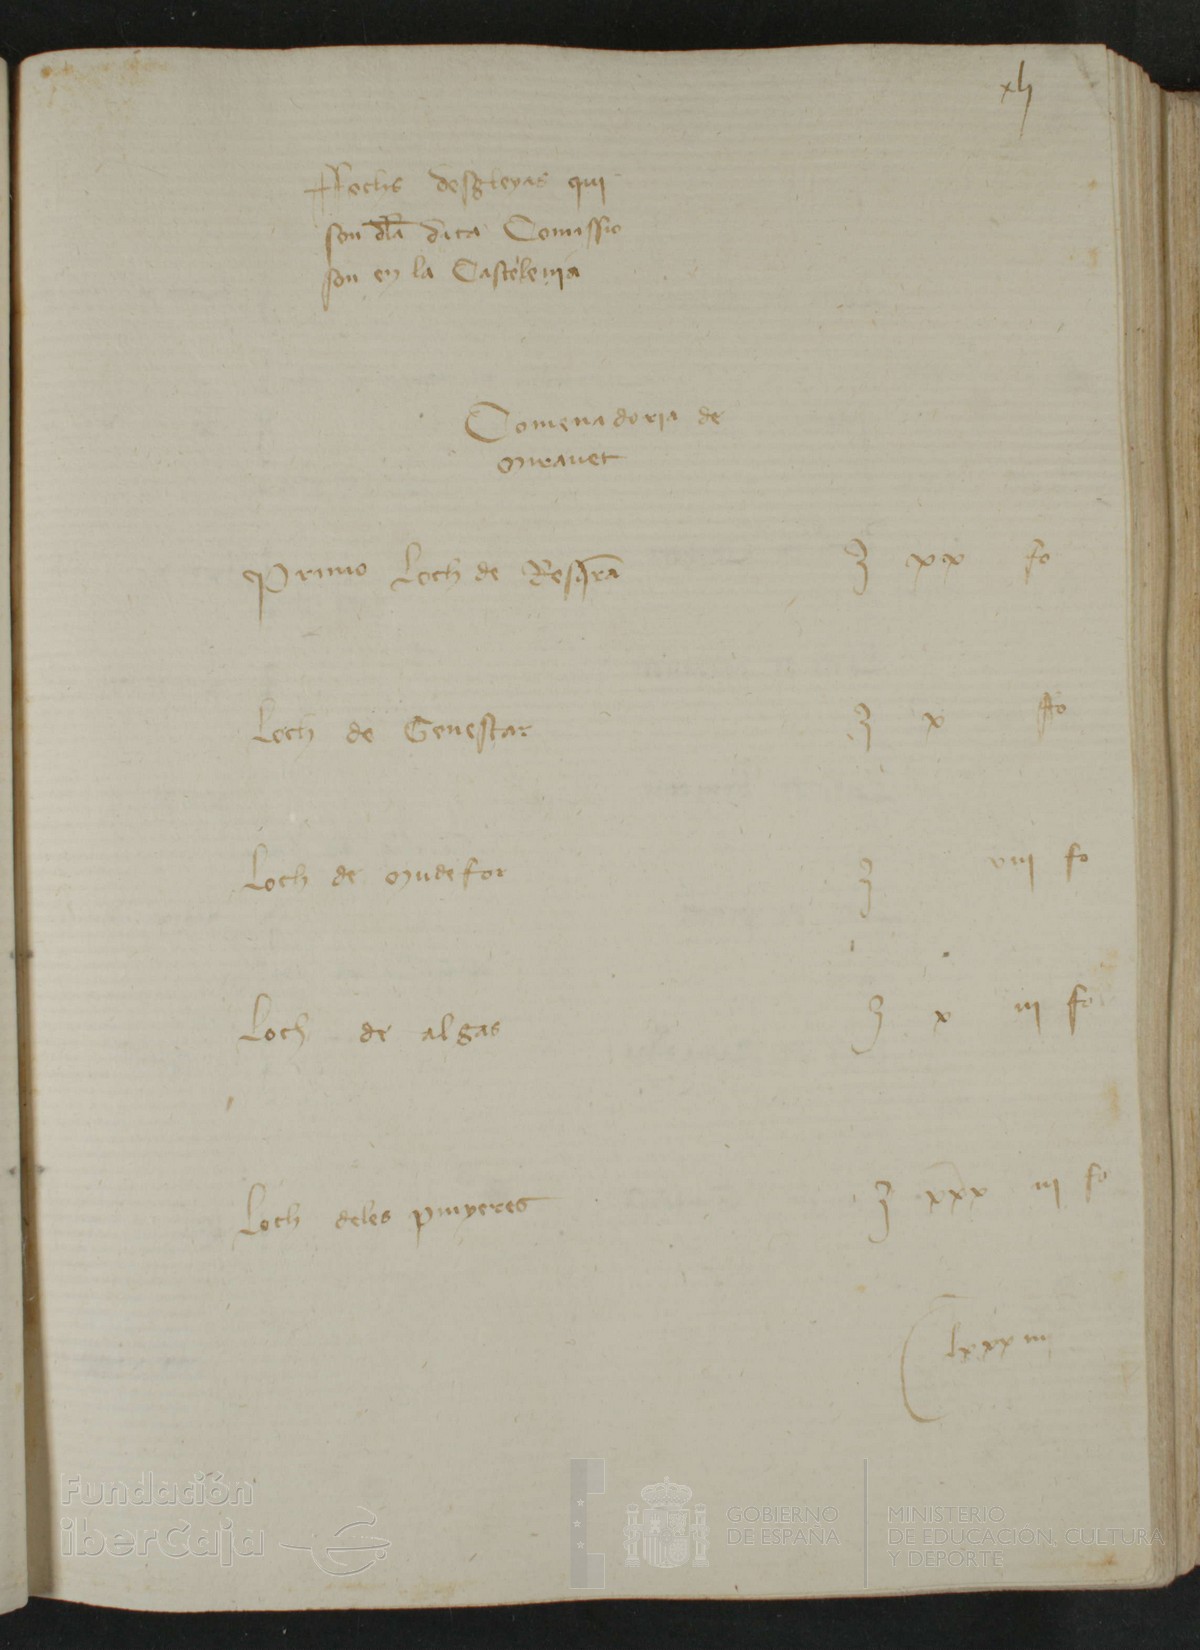 xlj
Ffochs desgleyas qui
son dla dita Comissio
son en la Castelenia
Comenadoria de
miravet
Primo Loch de Rasqra xx fo
Loch de Genestar x ffo
Loch de mudefer viii fo
Loch de algas x iii fo
Loch deles pinyeres xxx iii fo
lxxx iiii
Fundación
iberCaja
GOBIERNO
DE ESPAÑA
MINISTERIO
DE EDUCACIÓN, CULTURA
Y DEPORTE